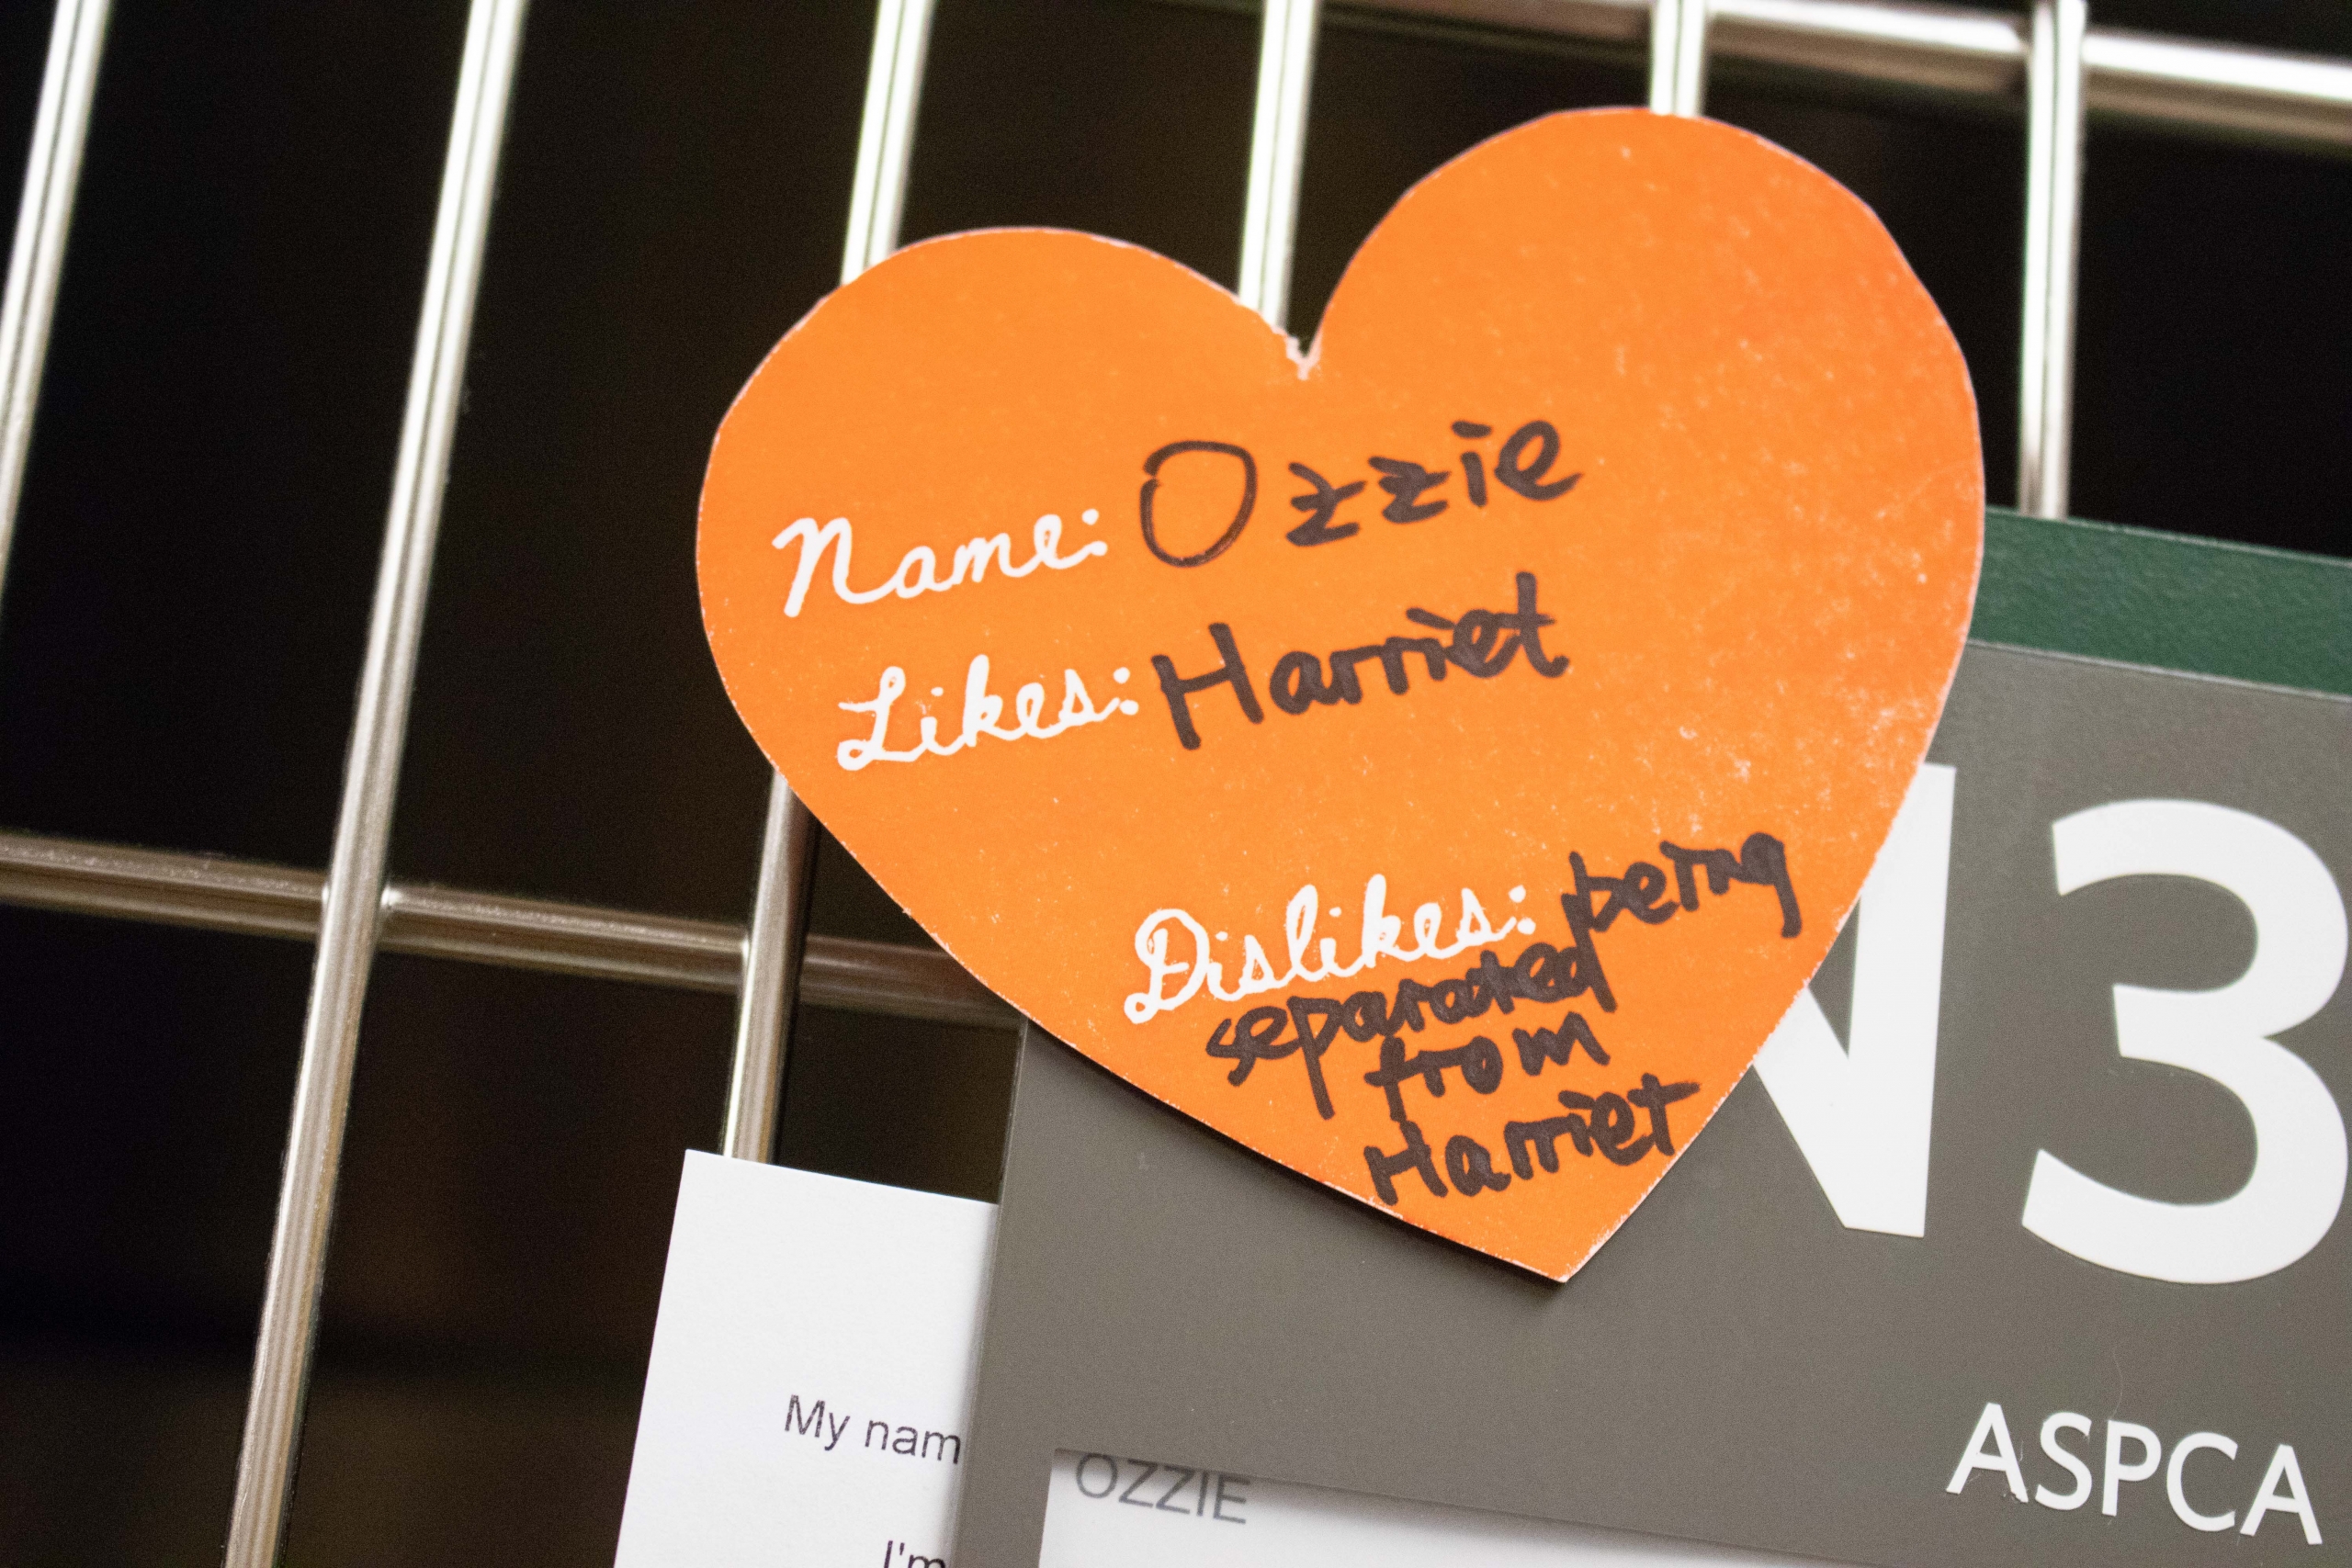 Name: Ozzie
Likes: Harriet
Dislikes: being
separated
from
Harriet
N3
ASPCA
My nam
OZZIE
I'm